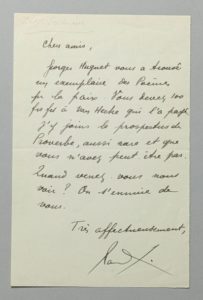 Chers amis,
Georges Hugnet vous a trouvé
un exemplaire des Poèmes
pr la paix. Vous devez 100
frs à van Hecke qui l'a payé
J'y joins le prospectus de
Proverbe, aussi rare et que
vous n'avez peut être pas.
Quand venez-vous nous
voir? On s'ennuie de
vous.
Très affectueusement,